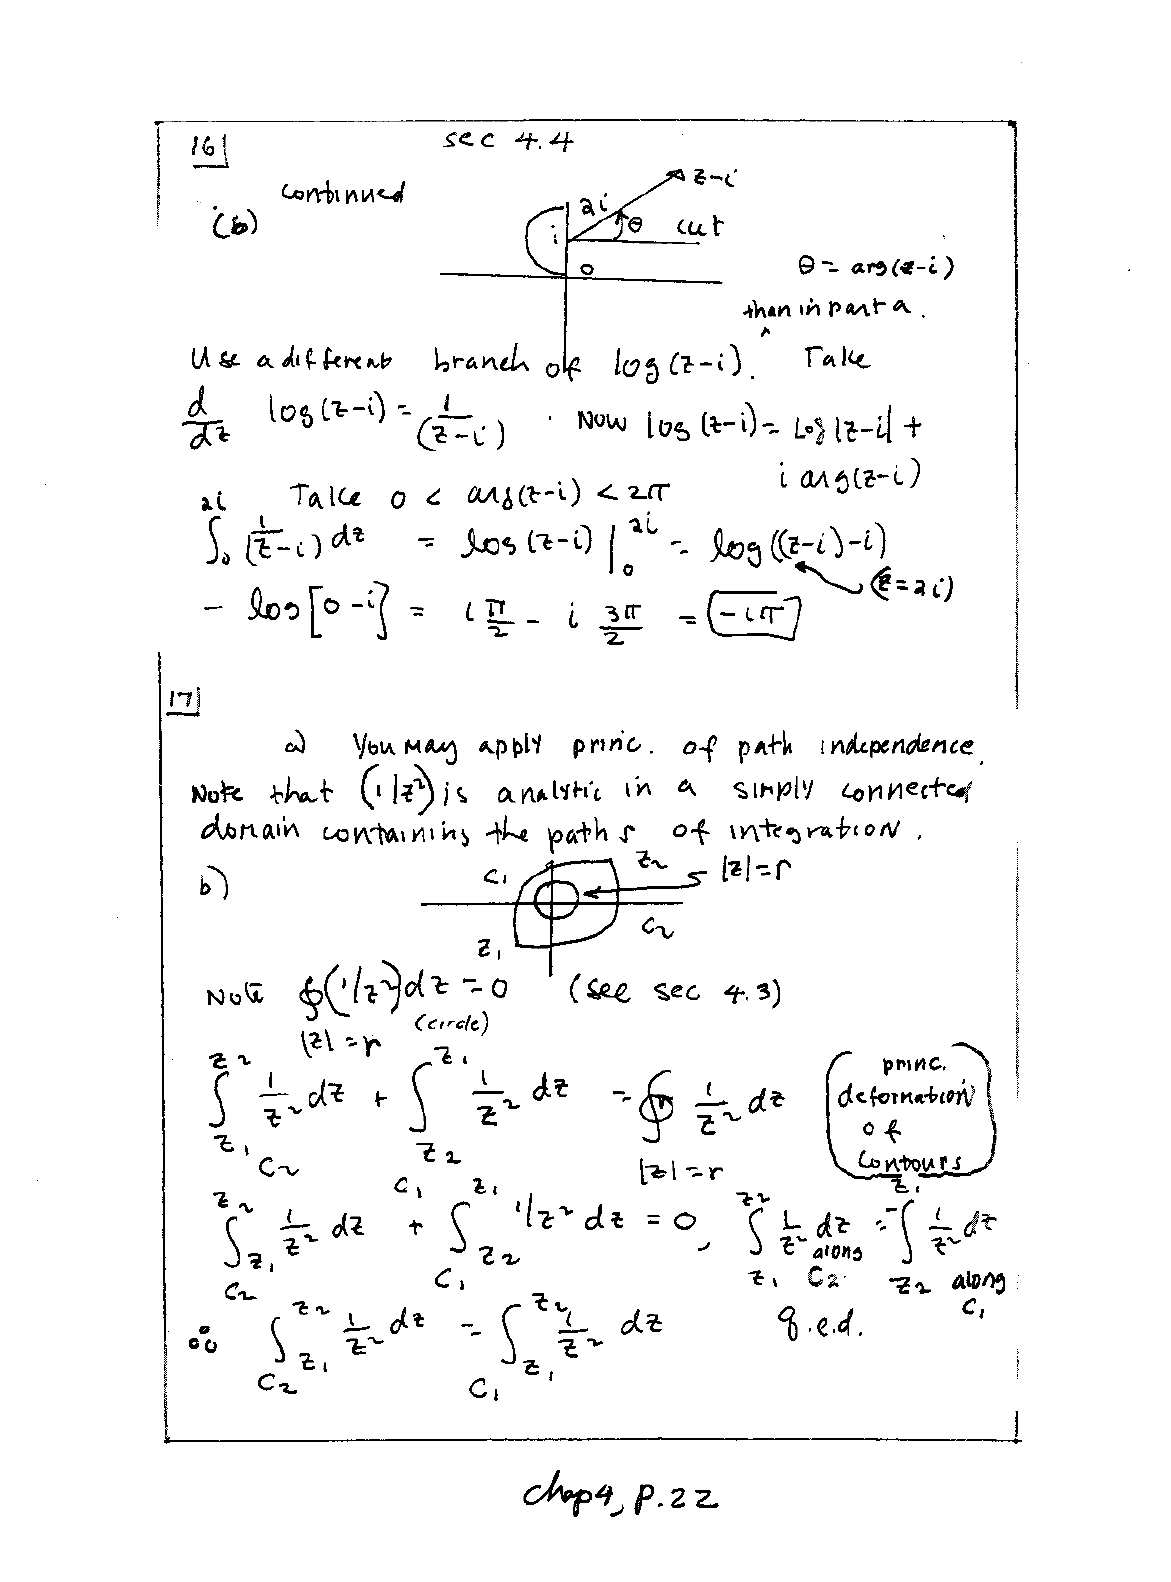 16
sec 4.4
continued
(b)
z-i
2i
θ
cut
i
0
θ = arg(z-i)
than in part a.
Use a different branch of log(z-i). ^ Take
d/dz log(z-i) = 1/(z-i) . Now log(z-i) = Log|z-i| +
i arg(z-i)
Take 0 < arg(z-i) < 2π
∫₀²ⁱ 1/(z-i) dz = log(z-i) |₀²ⁱ = log((z-i)-i)
(z=2i)
- log[0-i] = i π/2 - i 3π/2 = -iπ
17
a) You may apply princ. of path independence.
Note that (1/z²) is analytic in a simply connected
domain containing the paths of integration.
b)
C₁
z₂
|z|=r
C₂
z₁
Note ∮(1/z²)dz = 0 (see sec 4.3)
|z|=r (circle)
∫_{z₁}^{z₂} 1/z² dz + ∫_{z₂}^{z₁} 1/z² dz = ∮ 1/z² dz
C₂ C₁ |z|=r
princ.
deformation
of
contours
∫_{z₁}^{z₂} 1/z² dz + ∫_{z₂}^{z₁} 1/z² dz = 0, ∫_{z₁}^{z₂} 1/z² dz = -∫_{z₂}^{z₁} 1/z² dz
C₂ C₁ along C₂ along C₁
∴ ∫_{z₁}^{z₂} 1/z² dz = ∫_{z₁}^{z₂} 1/z² dz q.e.d.
C₂ C₁
chap4, p.22